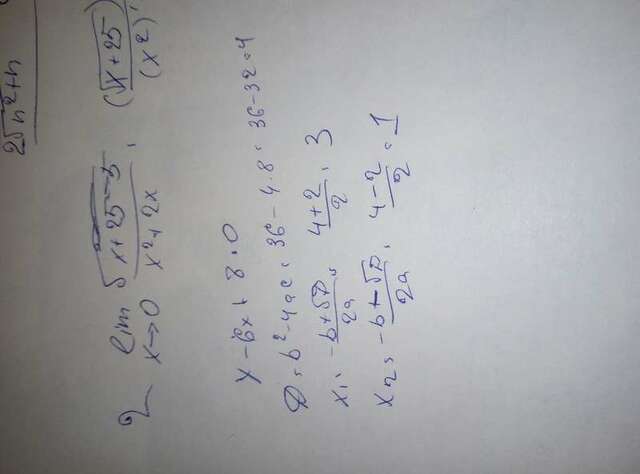 2√n²+n
2 lim x→0 (√x+25-5)/(x²+2x) = (√x+25)/(x²)
x-6x+8=0
D=b²-4ac=36-4·8=36-32=4
x₁=(-b+√D)/2a=(4+2)/2=3
x₂=(-b-√D)/2a=(4-2)/2=1